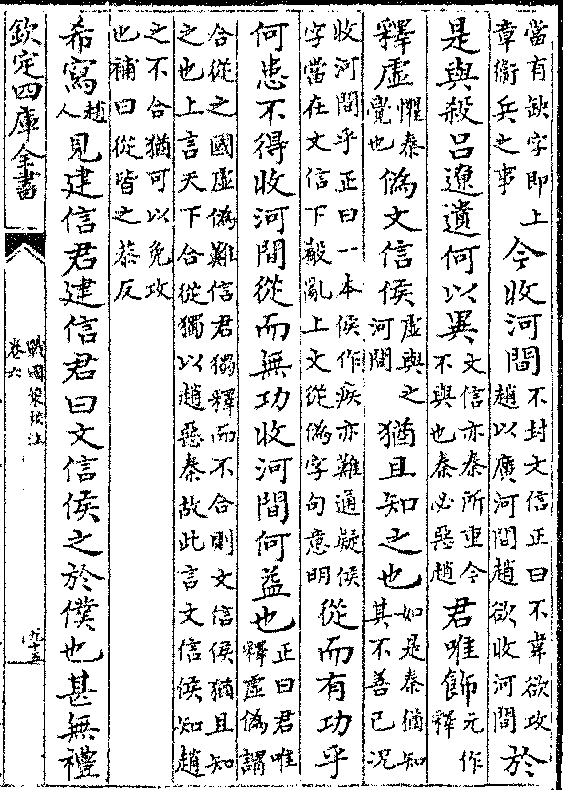 當有缺字即上
章衛兵之事
今收河間
不封文信正曰不韋欲攻
趙以廣河間趙欲收河間
於
是與殺呂遼遺何以異
文信亦秦所重今
不與也秦必惡趙
君唯飾
元作
釋
釋虛
懼秦
覺也
偽文信侯
虛與之
河間
猶且知之也
如是秦猶知
其不善已况
收河間乎正曰一本侯作疾亦難通疑侯
字當在文信下殽亂上文從偽字句意明
從而有功乎
何患不得收河間從而無功收河間何益也
正曰君唯
釋虛偽謂
合從之國虛偽難信君獨釋而不合則文信侯猶且知
之也上言天下合從獨以趙惡秦故此言文信侯知趙
之不合猶可以免攻
也補曰從皆之恭反
希寫
趙
人
見建信君建信君曰文信侯之於僕也甚無禮
欽定四庫全書
戰國策校注
卷六
九十五